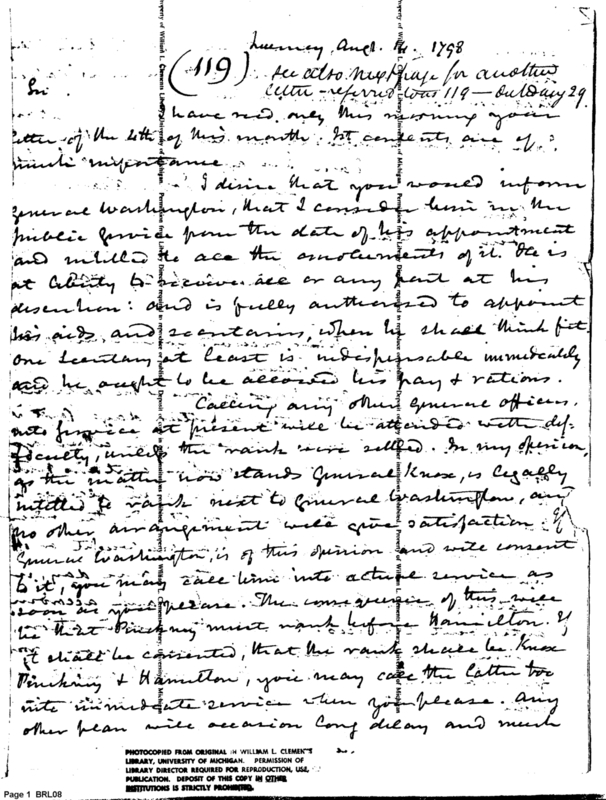 Quincy, Augt. 14. 1798
(119)
see also next page for another
letter - referred to as 119 - dated Aug 29
Sir
have recd. only this morning your
letter of the 4th of this month. Its contents are of
much importance
I desire that you would inform
General Washington, that I consider him in the
public service from the date of his appointment
and intitled to all the emoluments of it. He is
at liberty to receive all or any part at his
discretion: and is fully authorised to appoint
his aids and secretaries, when he shall think fit.
One Secretary at least is indispensable immediately
and he ought to be allowed his pay & rations.
Calling any other General officers
into service at present will be attended with dif-
ficulty, unless the rank were settled. In my opinion,
as the matter now stands General Knox, is legally
intitled to rank next to General Washington, and
no other arrangement will give satisfaction. If
General Washington, is of this opinion and will consent
to it, you may call him into actual service as
soon as you please. The consequence of this will
be that Pinckney must rank before Hamilton. If
it shall be consented, that the rank shall be Knox
Pinckney & Hamilton, you may call the latter too
into immediate service when you please. Any
other plan will occasion long delay and much
PHOTOCOPIED FROM ORIGINAL IN WILLIAM L. CLEMENTS
LIBRARY, UNIVERSITY OF MICHIGAN. PERMISSION OF
LIBRARY DIRECTOR REQUIRED FOR REPRODUCTION, USE,
PUBLICATION. DEPOSIT OF THIS COPY IN OTHER
INSTITUTIONS IS STRICTLY PROHIBITED.
Page 1 BRL08